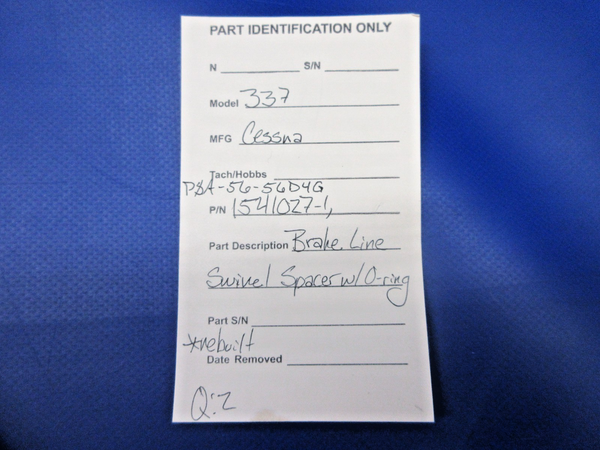 PART IDENTIFICATION ONLY
N ____________ S/N ____________
Model 337
MFG Cessna
Tach/Hobbs ____________
PSA-56-56D4G
P/N 1541027-1,
Part Description Brake Line
Swivel Spacer w/ O-ring
Part S/N ____________
*rebuilt
Date Removed ____________
Q:2